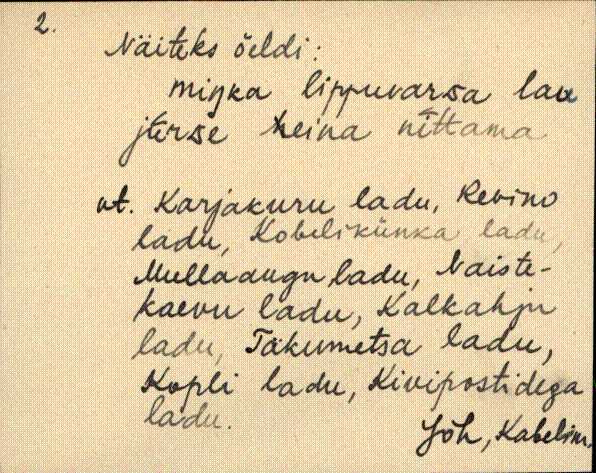 2.
Näiteks öeldi:
miŋka lippuvarsa lau
jterse heina nittama
vt. Karjakuru ladu, Revino
ladu, Kobelikünka ladu,
Mullaaugu ladu, Naiste-
kaevu ladu, Kalkahju
ladu, Täkumetsa ladu,
Kopli ladu, Kivipostidega
ladu.
Jõh, Kabelim.